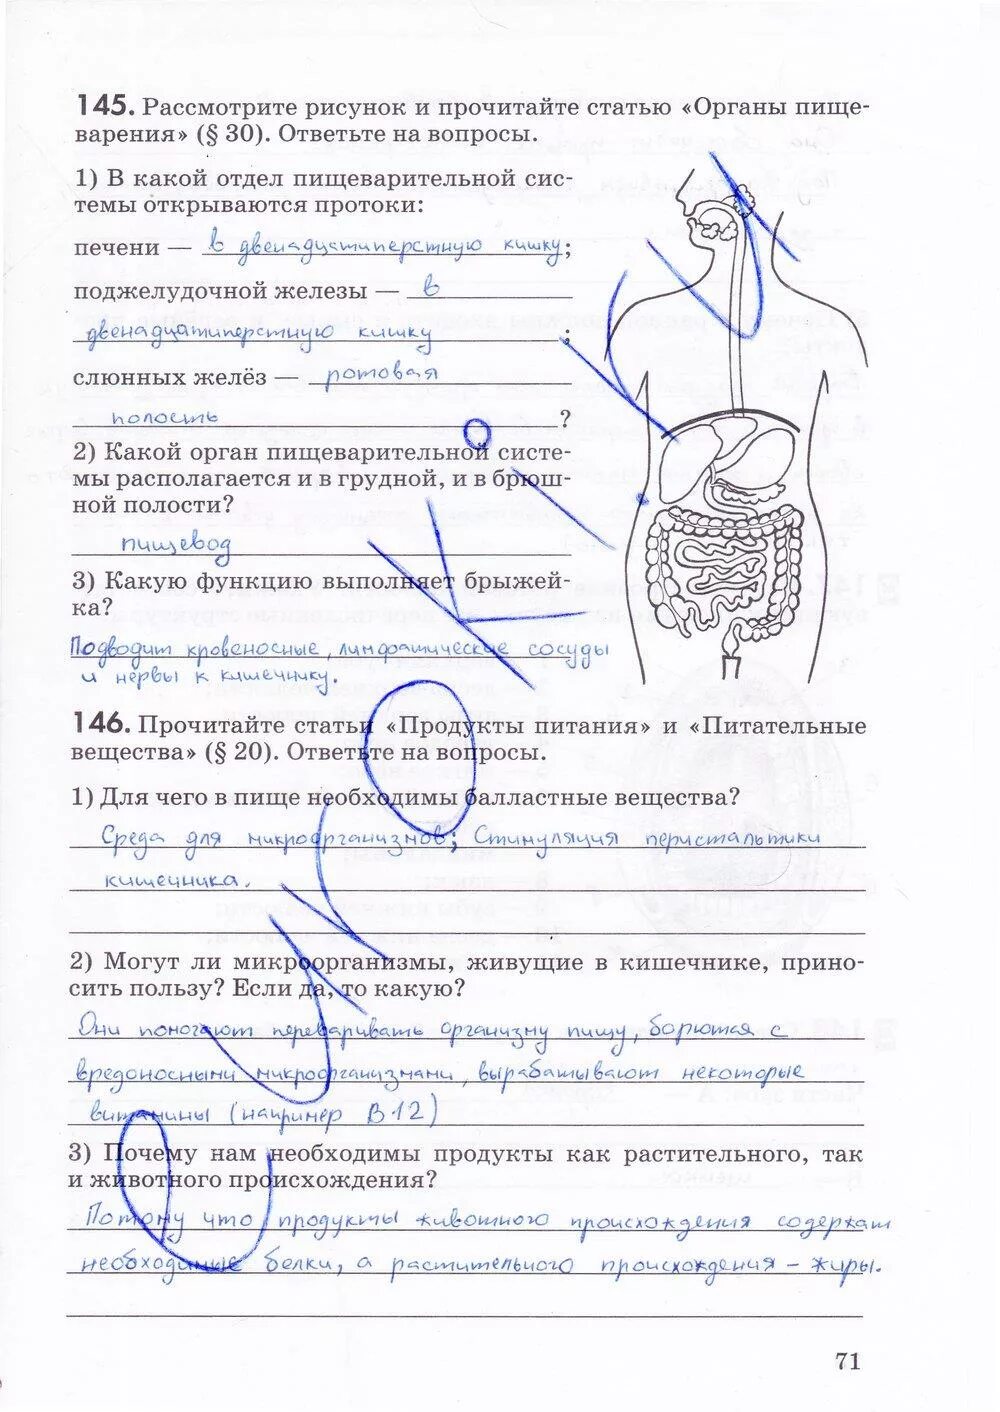 145. Рассмотрите рисунок и прочитайте статью «Органы пище-
варения» (§ 30). Ответьте на вопросы.
1) В какой отдел пищеварительной сис-
темы открываются протоки:
печени — в двенадцатиперстную кишку;
поджелудочной железы — в
двенадцатиперстную кишку;
слюнных желёз — ротовая
полость ?
2) Какой орган пищеварительной систе-
мы располагается и в грудной, и в брюш-
ной полости?
пищевод
3) Какую функцию выполняет брыжей-
ка?
Подводит кровеносные, лимфатические сосуды
и нервы к кишечнику.
146. Прочитайте статьи «Продукты питания» и «Питательные
вещества» (§ 20). Ответьте на вопросы.
1) Для чего в пище необходимы балластные вещества?
Среда для микроорганизмов; Стимуляция перистальтики
кишечника.
2) Могут ли микроорганизмы, живущие в кишечнике, прино-
сить пользу? Если да, то какую?
Они помогают переваривать организму пищу, борются с
вредоносными микроорганизмами, вырабатывают некоторые
витамины (например В12)
3) Почему нам необходимы продукты как растительного, так
и животного происхождения?
Потому что продукты животного происхождения содержат
необходимые белки, а растительного происхождения – жиры.
71